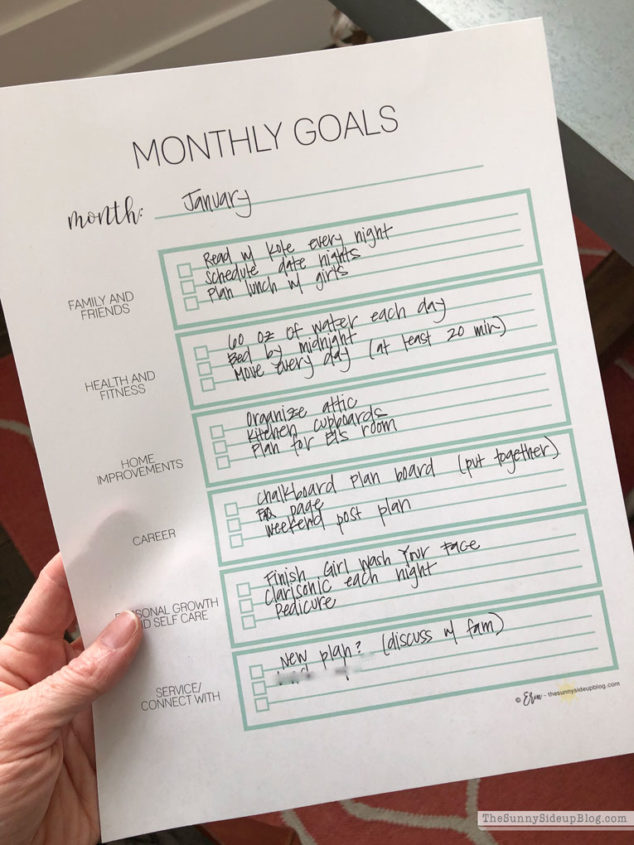 MONTHLY GOALS
month: January
FAMILY AND
FRIENDS
Read w/ Kole every night
Schedule date nights
Plan lunch w/ girls
HEALTH AND
FITNESS
60 oz of water each day
Bed by midnight
Move every day (at least 20 min)
HOME
IMPROVEMENTS
Organize attic
Kitchen cupboards
Plan for El's room
CAREER
Chalkboard plan board (put together)
FAQ page
Weekend post plan
PERSONAL GROWTH
AND SELF CARE
Finish Girl Wash Your Face
Clarisonic each night
Pedicure
SERVICE/
CONNECT WITH
New plan? (discuss w/ fam)
© - thesunnysideupblog.com
TheSunnySideupBlog.com